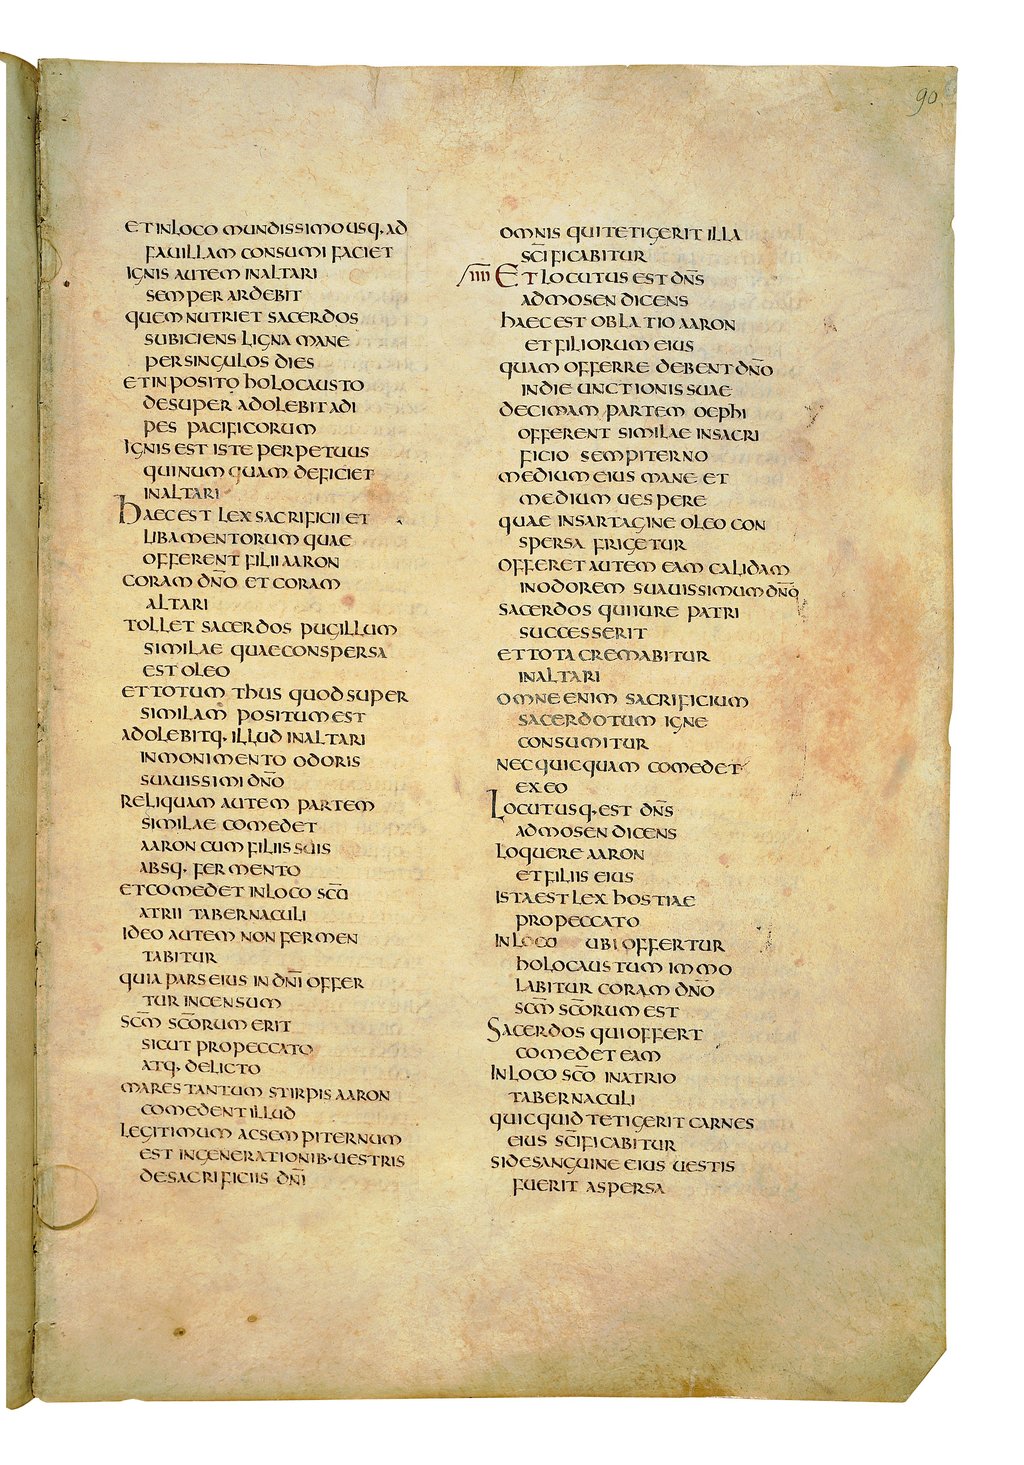 90
ET IN LOCO MUNDISSIMO USQ· AD
FAUILLAM CONSUMI FACIET
IGNIS AUTEM IN ALTARI
SEMPER ARDEBIT
QUEM NUTRIET SACERDOS
SUBICIENS LIGNA MANE
PER SINGULOS DIES
ET INPOSITO HOLOCAUSTO
DESUPER ADOLEBIT ADI
PES PACIFICORUM
IGNIS EST ISTE PERPETUUS
QUI NUMQUAM DEFICIET
IN ALTARI
HAEC EST LEX SACRIFICII ET
LIBAMENTORUM QUAE
OFFERENT FILII AARON
CORAM DN̅O ET CORAM
ALTARI
TOLLET SACERDOS PUGILLUM
SIMILAE QUAE CONSPERSA
EST OLEO
ET TOTUM THUS QUOD SUPER
SIMILAM POSITUM EST
ADOLEBITQ· ILLUD IN ALTARI
IN MONIMENTO ODORIS
SUAUISSIMI DN̅O
RELIQUAM AUTEM PARTEM
SIMILAE COMEDET
AARON CUM FILIIS SUIS
ABSQ· FERMENTO
ET COMEDET IN LOCO SC̅O
ATRII TABERNACULI
IDEO AUTEM NON FERMEN
TABITUR
QUIA PARS EIUS IN DN̅I OFFER
TUR INCENSUM
SC̅M SC̅ORUM ERIT
SICUT PRO PECCATO
ATQ· DELICTO
MARES TANTUM STIRPIS AARON
COMEDENT ILLUD
LEGITIMUM AC SEMPITERNUM
EST IN GENERATIONIB· UESTRIS
DE SACRIFICIIS DN̅I
OMNIS QUI TETIGERIT ILLA
SC̅IFICABITUR
IIII ET LOCUTUS EST DN̅S
AD MOSEN DICENS
HAEC EST OBLATIO AARON
ET FILIORUM EIUS
QUAM OFFERRE DEBENT DN̅O
IN DIE UNCTIONIS SUAE
DECIMAM PARTEM OEPHI
OFFERENT SIMILAE IN SACRI
FICIO SEMPITERNO
MEDIUM EIUS MANE ET
MEDIUM UESPERE
QUAE IN SARTAGINE OLEO CON
SPERSA FRIGETUR
OFFERET AUTEM EAM CALIDAM
IN ODOREM SUAUISSIMUM DN̅O
SACERDOS QUI IURE PATRI
SUCCESSERIT
ET TOTA CREMABITUR
IN ALTARI
OMNE ENIM SACRIFICIUM
SACERDOTUM IGNE
CONSUMITUR
NEC QUICQUAM COMEDET
EX EO
LOCUTUSQ· EST DN̅S
AD MOSEN DICENS
LOQUERE AARON
ET FILIIS EIUS
ISTA EST LEX HOSTIAE
PRO PECCATO
IN LOCO UBI OFFERTUR
HOLOCAUSTUM IMMO
LABITUR CORAM DN̅O
SC̅M SC̅ORUM EST
SACERDOS QUI OFFERT
COMEDET EAM
IN LOCO SC̅O IN ATRIO
TABERNACULI
QUICQUID TETIGERIT CARNES
EIUS SC̅IFICABITUR
SI DE SANGUINE EIUS UESTIS
FUERIT ASPERSA